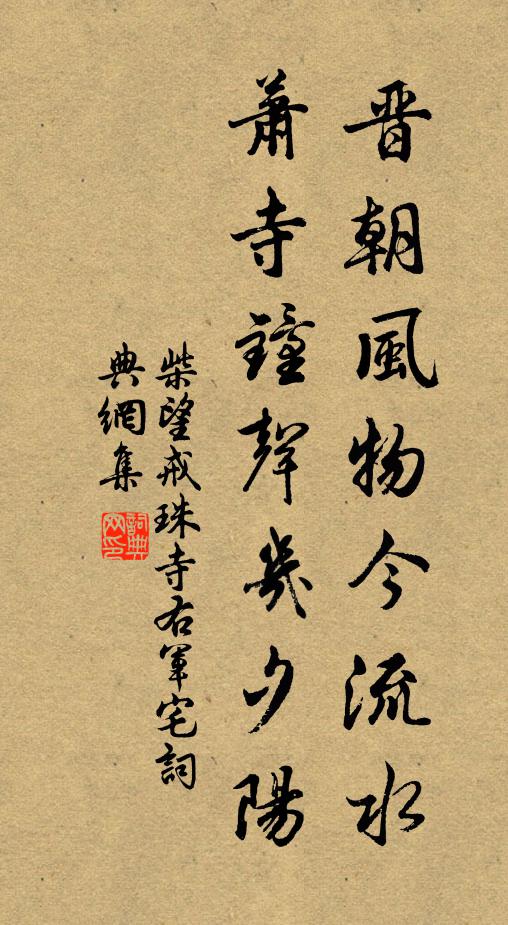 晋朝風物今流水
蕭寺鐘聲幾夕陽
柴望戒珠寺右軍宅詞
典網集
詞典
网印